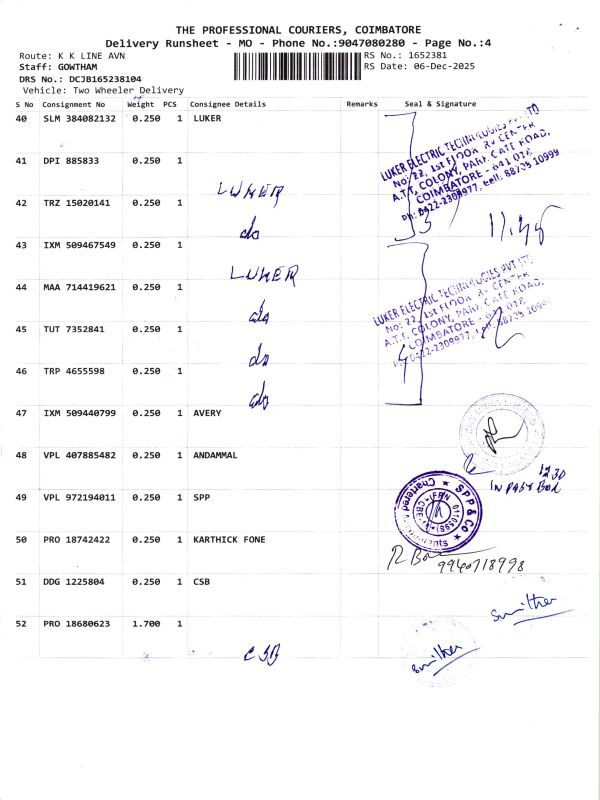 THE PROFESSIONAL COURIERS, COIMBATORE
Delivery Runsheet - MO - Phone No.:9047080280 - Page No.:4
Route: K K LINE AVN
RS No.: 1652381
Staff: GOWTHAM
RS Date: 06-Dec-2025
DRS No.: DCJB165238104
Vehicle: Two Wheeler Delivery
S No Consignment No Weight PCS Consignee Details Remarks Seal & Signature
40 SLM 384082132 0.250 1 LUKER
LUKER ELECTRIC TECHNOLOGIES PVT LTD
No: 22, 1st FLOOR, RV CENTER
A.T.T. COLONY, PARK GATE ROAD,
COIMBATORE - 641 018
Ph: 0422-2309977, Cell: 88735 10999
41 DPI 885833 0.250 1
LUKER
42 TRZ 15020141 0.250 1
do
3
11.45
43 IXM 509467549 0.250 1
LUKER
LUKER ELECTRIC TECHNOLOGIES PVT LTD
No: 22, 1st FLOOR, RV CENTER
A.T.T. COLONY, PARK GATE ROAD,
COIMBATORE - 641 018
Ph: 0422-2309977, Cell: 88735 10999
44 MAA 714419621 0.250 1
do
45 TUT 7352841 0.250 1
do
4
46 TRP 4655598 0.250 1
do
47 IXM 509440799 0.250 1 AVERY
48 VPL 407885482 0.250 1 ANDAMMAL
1230
49 VPL 972194011 0.250 1 SPP
SPP & Co
Chartered Accountants
50 PRO 18742422 0.250 1 KARTHICK FONE
9940718998
51 DDG 1225804 0.250 1 CSB
Sunitha
52 PRO 18680623 1.700 1
CSB
Sunitha